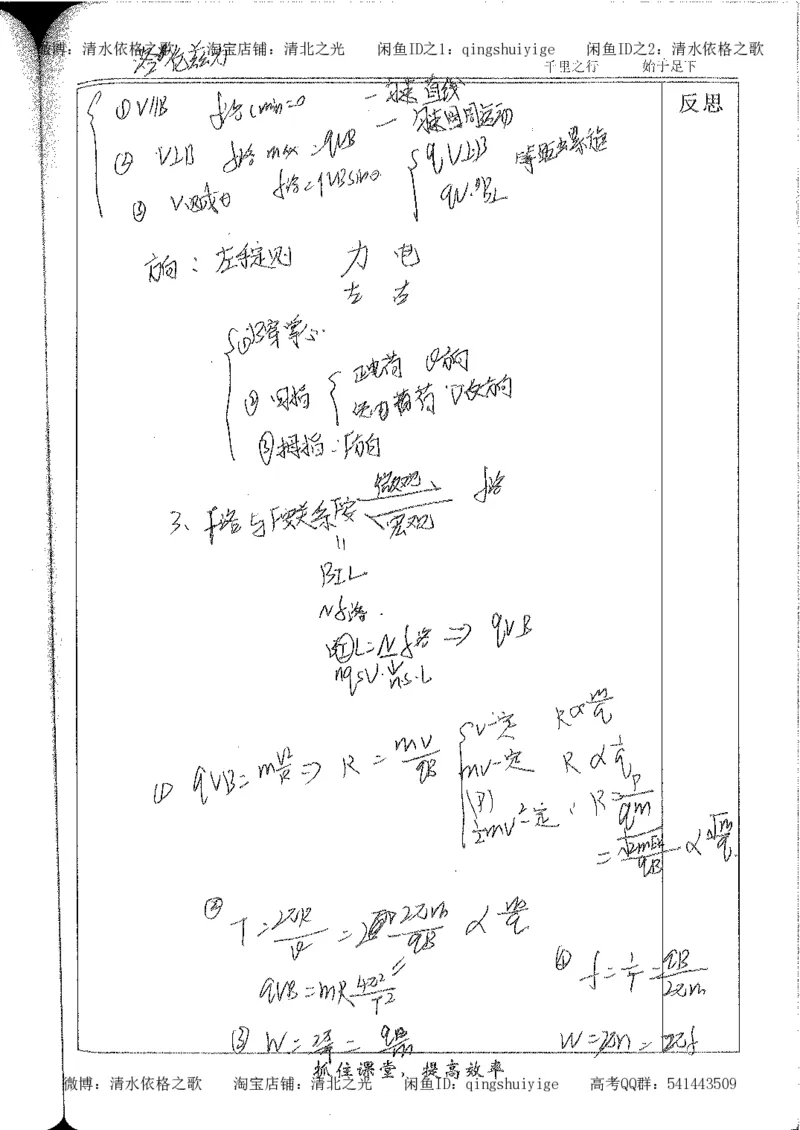 微博：清水依格之歌 淘宝店铺：清北之光 闲鱼ID之1：qingshuiyige 闲鱼ID之2：清水依格之歌
千里之行 始于足下
反思
① V∥B f洛min=0 — 匀速直线
② V⊥B f洛max=qVB — 匀速圆周运动
③ f洛=qVBsinθ { qV⊥B 等距螺旋
qV∥B⊥
方向：左手定则 力 电
左 右
① B穿掌心
② 四指 { 正电荷 V方向
负电荷 V反方向
③ 拇指：F方向
3、f洛与F安关系 F安 微观 f洛
宏观
=
BIL
Nf洛.
BIL=Nf洛 ⇒ qVB
nqsV nsL
① qVB=mV²/R ⇒ R=mV/qB { V一定 R∝m/q
mv一定 R∝1/q
(P)
½mv²一定： R=P/qB
=√2mEk/qB ∝ √m/q.
② T=2πR/v = 2πm/qB ∝ m/q
qVB=mR4π²/T²
④ f=1/T=qB/2πm
③ W=2π/T=qB/m W=2πn=2πf
抓住课堂，提高效率
微博：清水依格之歌 淘宝店铺：清北之光 闲鱼ID：qingshuiyige 高考QQ群：541443509